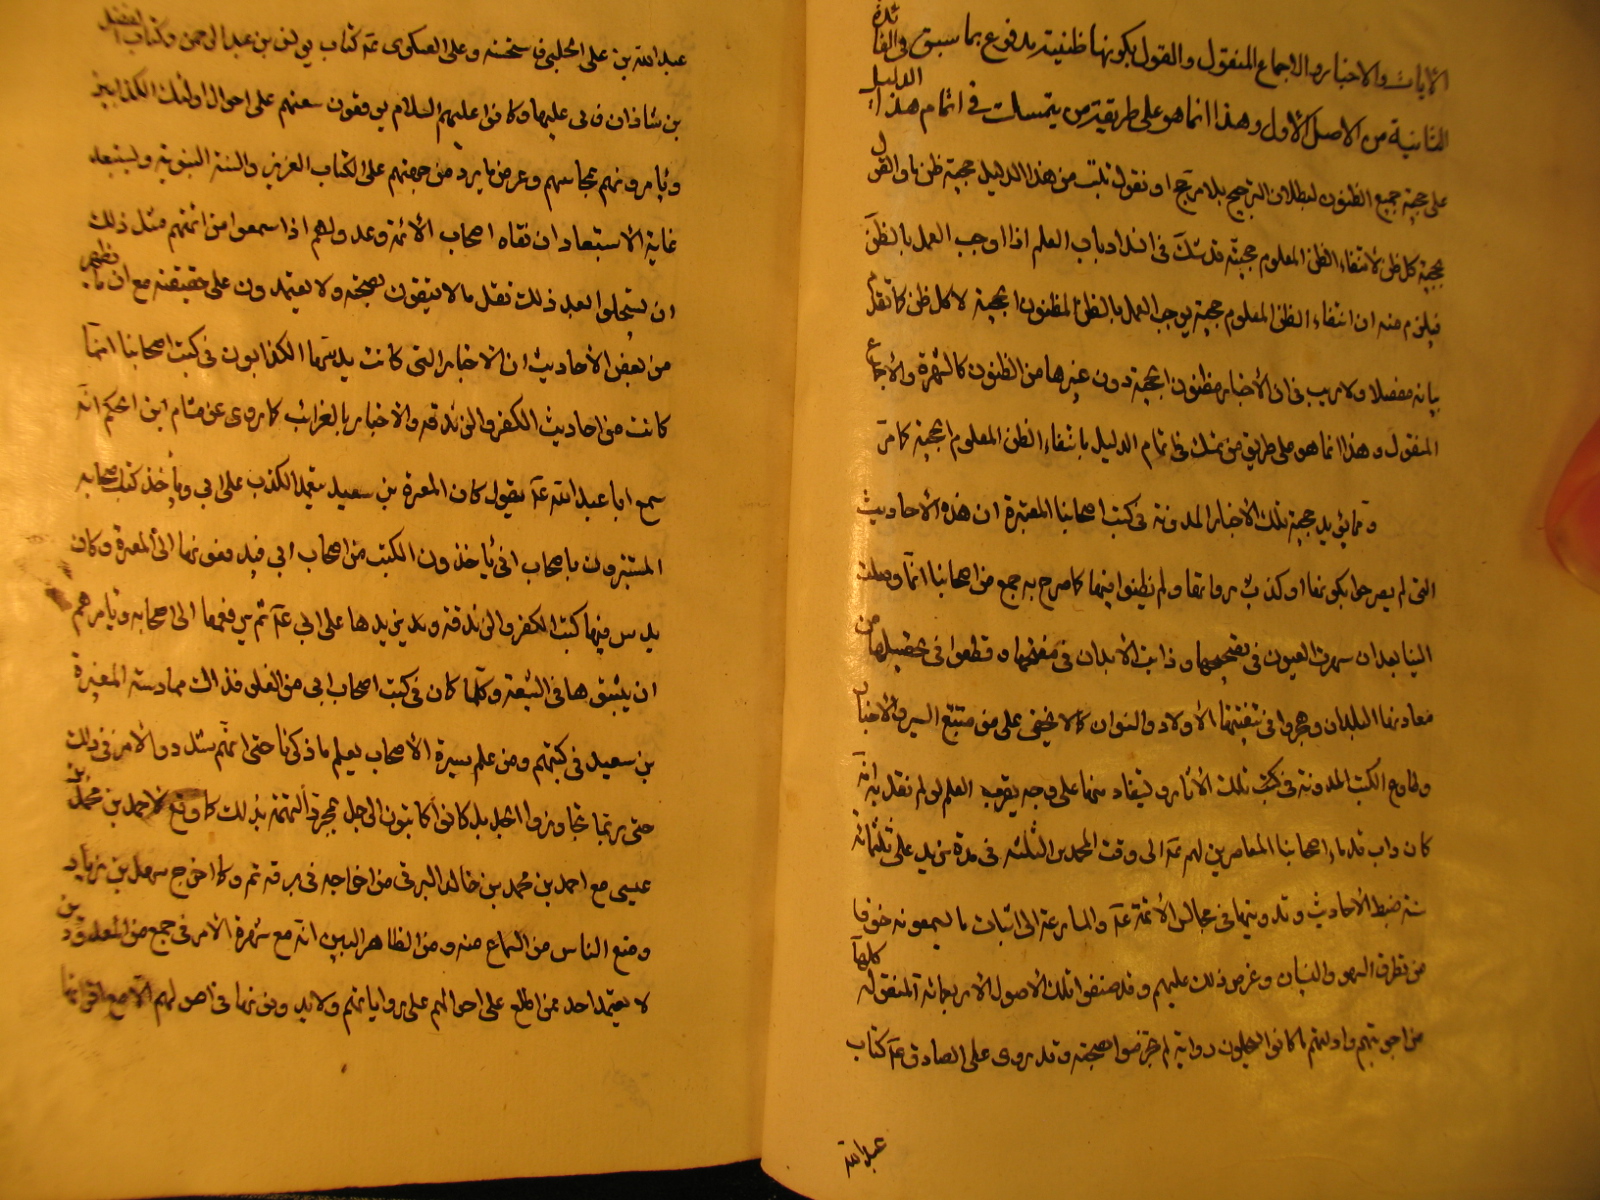 الآيات والاخبار والاجماع المنقول والقول بكونها ظنية مدفوع بما سبق فى الفائدة
الثانية من الاصل الاول وهذا انما هو على طريقة من يتمسك فى اتمام هذا الدليل
على حجية جميع الظنون لبطلان الترجيح بلا مرجح او نقول ثبت من هذا الدليل حجية ظن ما والقول
بحجية كل ظن لانتفاء الظن المعلوم حجيته قد شك فى انسداد باب العلم اذا وجب العمل بالظن
فيلزم منه ان انتفاء الظن المعلوم حجيته يوجب العمل بالظن المظنون الحجية لا كل ظن كما تقدم
بيانه مفصلا ولا ريب فى ان الأخبار مظنون الحجية دون غيرها من الظنون كالشهرة والاجماع
المنقول وهذا انما هو على طريق من تمسك فى اتمام الدليل بانتفاء الظن المعلوم الحجية كما مر
ومما يؤيد حجية تلك الأخبار المدونة فى كتب اصحابنا المعتبرة ان هذه الأحاديث
التى لم يصرحوا بكونها او كذب رواتها ولم يطعنوا فيها كما صرح به جمع من اصحابنا انما وصلت
الينا بعد ان سهرت العيون فى تصحيحها وذابت الأبدان فى تنقيحها وقطعوا فى تحصيلها من
معادنها البلدان وهجروا فى تنقيتها الأولاد والنسوان كما لا يخفى على من تتبع السير والأخبار
وطالع الكتب المدونة فى تلك الآثار ويستفاد منها على وجه يقرب العلم لو لم نقل به انه
كان داب قدماء اصحابنا المعاصرين لهم عم الى وقت المحمدين الثلثة فى مدة تزيد على ثلثمائة
سنة ضبط الأحاديث وتدوينها فى مجالس الأئمة عم والمسارعة الى اثبات ما يسمعونه خوفا
من تطرق السهو والنسيان وعرض ذلك عليهم وقد صنفوا تلك الاصول الأربعمائة المنقولة كلها
من اجوبتهم وادلتهم ما كانوا يستحلون رواية لم يجزموا بصحته وقد روى على الصادق عم كتاب
عبد الله
عبد الله بن على الحلبى فاستحسنه وعلى العسكرى عم كتاب يونس بن عبد الرحمن وكتاب الفضل
بن شاذان فاثنى عليها وكانوا عليهم السلام يوقفون شيعتهم على احوال اولئك الكذابين
ويأمرونهم بمجانبتهم وعرض ما يرد من جهتهم على الكتاب العزيز والسنة النبوية ويستبعد
غاية الاستبعاد ان ثقاة اصحاب الأئمة وعدولهم اذا سمعوا من ائمتهم مثل ذلك
ان يستحلوا بعد ذلك نقل ما لا يثقون بصحته ولا يعتمدون على حقيقته مع ان ما يظهر
من بعض الأحاديث ان الاخبار التى كانت يدسها الكذابون فى كتب اصحابنا انما
كانت من احاديث الكفر والزندقة والاخبار بالغرائب كما روى عن هشام ابن الحكم انه
سمع ابا عبد الله عم يقول كان المغيرة بن سعيد يتعمد الكذب على ابى ويأخذ كتب اصحابه
المستترون باصحاب ابى يأخذون الكتب من اصحاب ابى فيدفعونها الى المغيرة وكان
يدس فيها كتب الكفر والزندقة ويسندها على ابى عم ثم يدفعها الى اصحابه ويأمرهم
ان يبثوها فى الشيعة وكلما كان فى كتب اصحاب ابى من الغلو فذاك مما دسه المغيرة
بن سعيد فى كتبهم ومن علم سيرة الأصحاب يعلم ما ذكرنا حتى انهم شددوا الامر فى ذلك
حتى ربما تجاوزوا الحد بل كانوا يجانبون الرجل بمجرد التهمة بذلك كما وقع لاحمد بن محمد بن
عيسى مع احمد بن محمد بن خالد البرقى من اخراجه فى برقه تم وكما اخرج سهل بن زياد
ومنع الناس من السماع منه ومن الظاهر البين انه مع شهرة الأمر فى جمع من المعدودين
لا يعتمد احد ممن اطلع على احوالهم على رواياتهم ولا يدونونها فى اصولهم الا مع